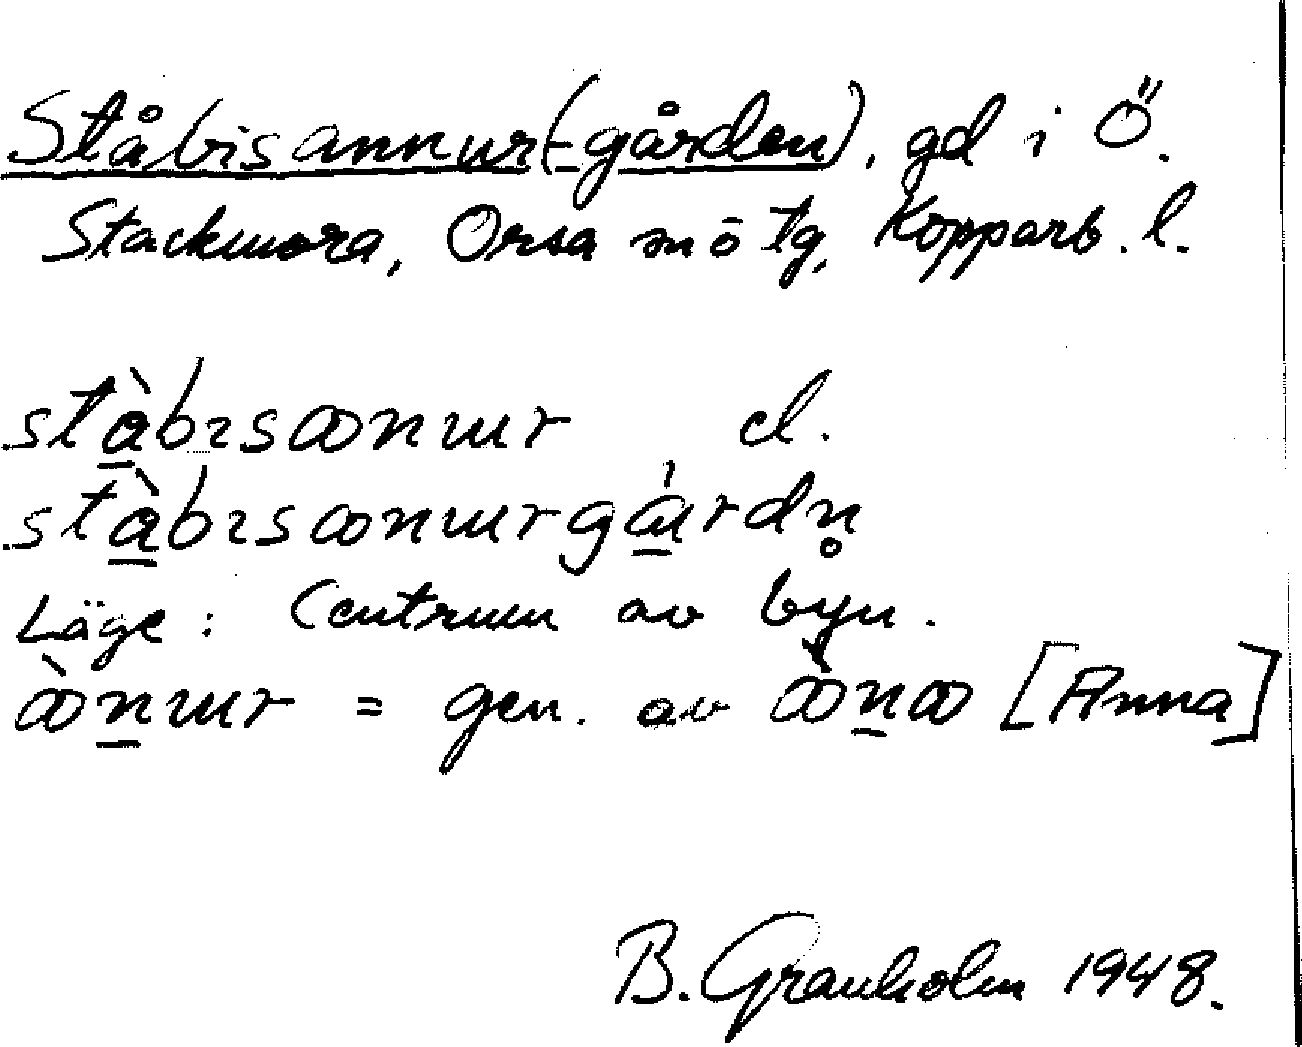 Ståbisannur(-gården), gd i Ö.
Stackmora, Orsa sn ö tg, Kopparb. l.
stå̀bɪsannur el.
stå̀bɪsannurgǻrdn̥
Läge: Centrum av byn.
ànur = gen. av àna [Anna]
B. Granholm 1948.